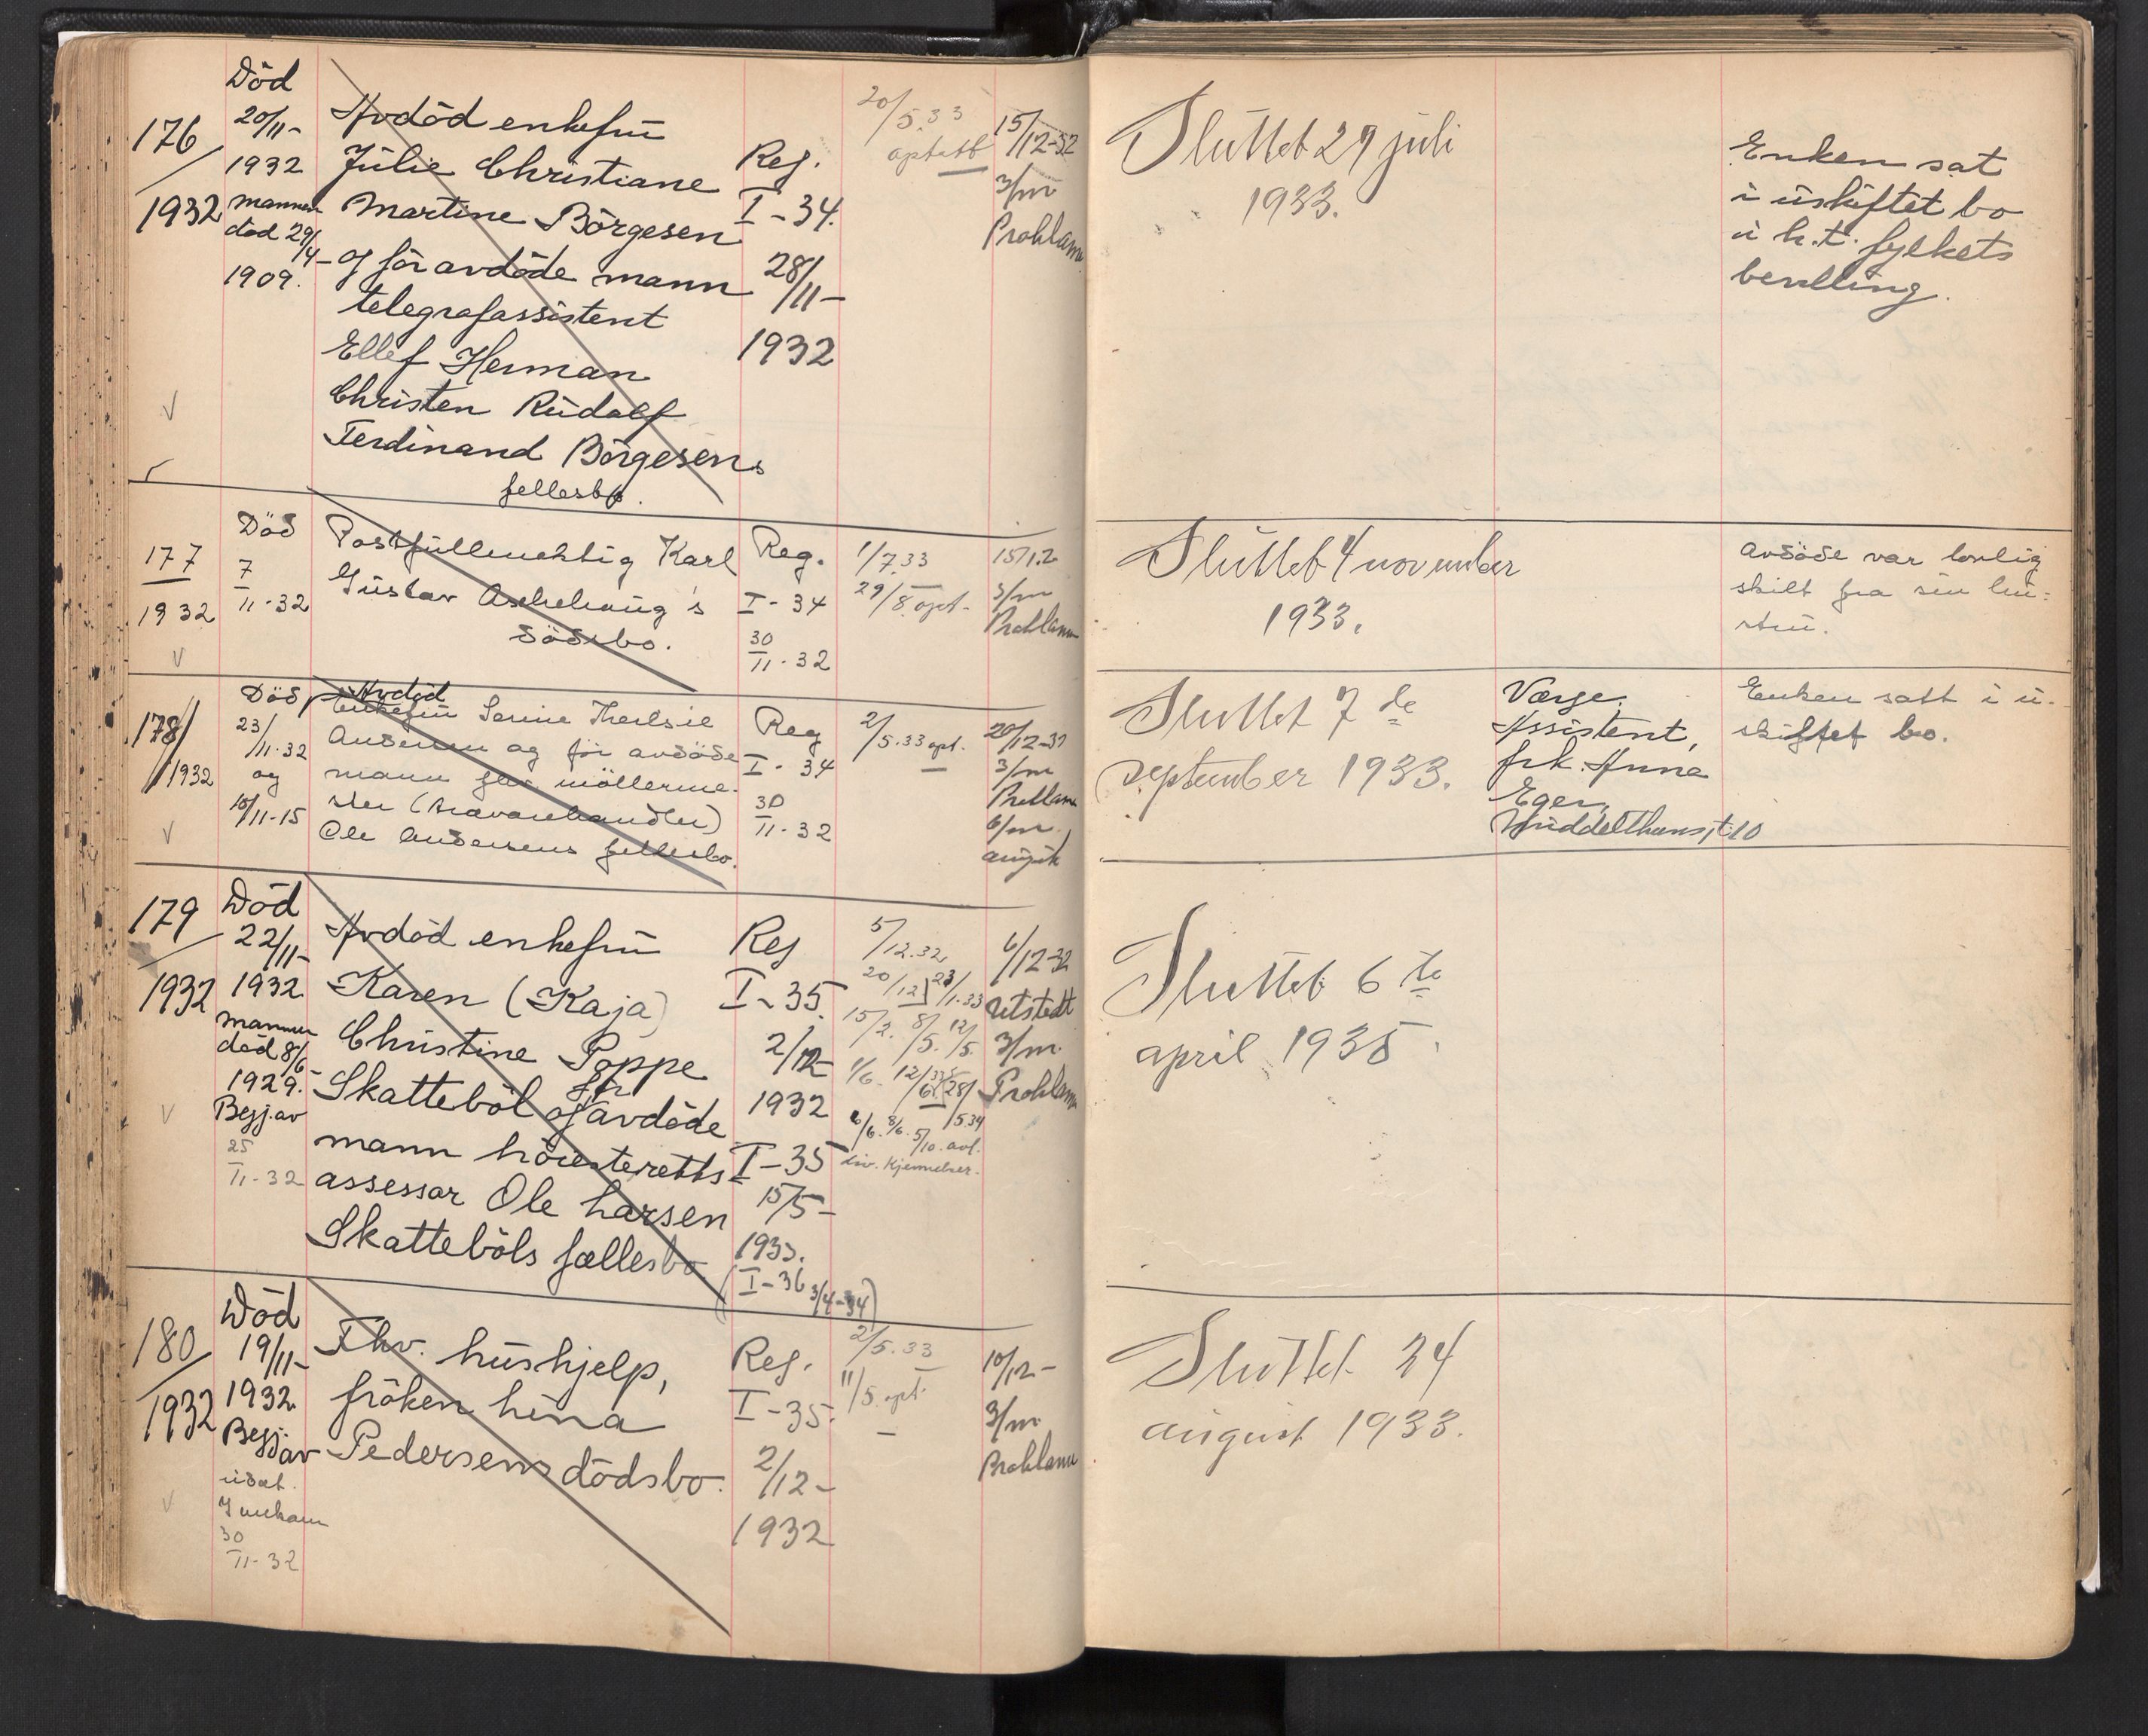 176/1932
Död
20/11-
1932
mannen
död 29/4-
1909.
Avdöd enkefru
Julie Christiane
Martine Börgesen
ogför avdöde mann
telegrafassistent
Ellef Herman
Christen Rudolf
Ferdinand Börgesens
fellesbo.
Reg.
I-34.
28/11-
1932
20/5.33
15/12-32
3/m
Proklama
Sluttet 29 juli
1933.
Enken sat
i uskiftet bo
i h.t. fylkets
bevilling.
177
1932
Död
7
11-32
Postfullmektig Karl
Gustav Aschehoug's
dödsbo.
Reg.
I-34
30
11-32
1/7.33
29/8. opt.
15/12
3/m
Proklama
Sluttet 4 november
1933.
Avdöde var lovlig
skilt fra sin hu-
stru.
178/1932
Död
23/11-32
og
10/11-15
Avdöd
Enkefru Serine
Andersen og för avdöde
mann fhv. möllerme-
ster (
Ole Andersens fellesbo.
Reg
I-34
30
11-32
2/5.33 opt.
20/12-32
3/m
Proklama
6/m
Sluttet 7de
september 1933.
Værge,
Assistent,
frk. Anna
Eger,
Middelthunsgt. 10
Enken satt i u-
skiftet bo.
179
1932
Död
22/11-
1932
mannen
död 8/6-
1929.
Begj. av
25
11-32
Avdöd enkefru
Karen (Kaja)
Christine Poppe
Skatteböl og för avdöde
mann höiesteretts
assessor Ole Larsen
Skatteböls fællesbo
Reg
I-35.
2/12-
1932
I-35
15/5-
1933.
(I-36 3/4-34)
5/12.32
20/12 23/1.33
15/2. 8/5. 12/5.
div. kjennelser.
6/12-32
Utstedt
3/m.
Proklama
Sluttet 6te
april 1935.
180/1932
Död
19/11-
1932.
Begj av
30
11-32
Fhv. hushjelp,
fröken Lina
Pedersens dödsbo.
Reg.
I-35.
2/12-
1932
2/5.33
11/5 opt.
10/12-
3/m
Proklama
Sluttet 24
august 1933.